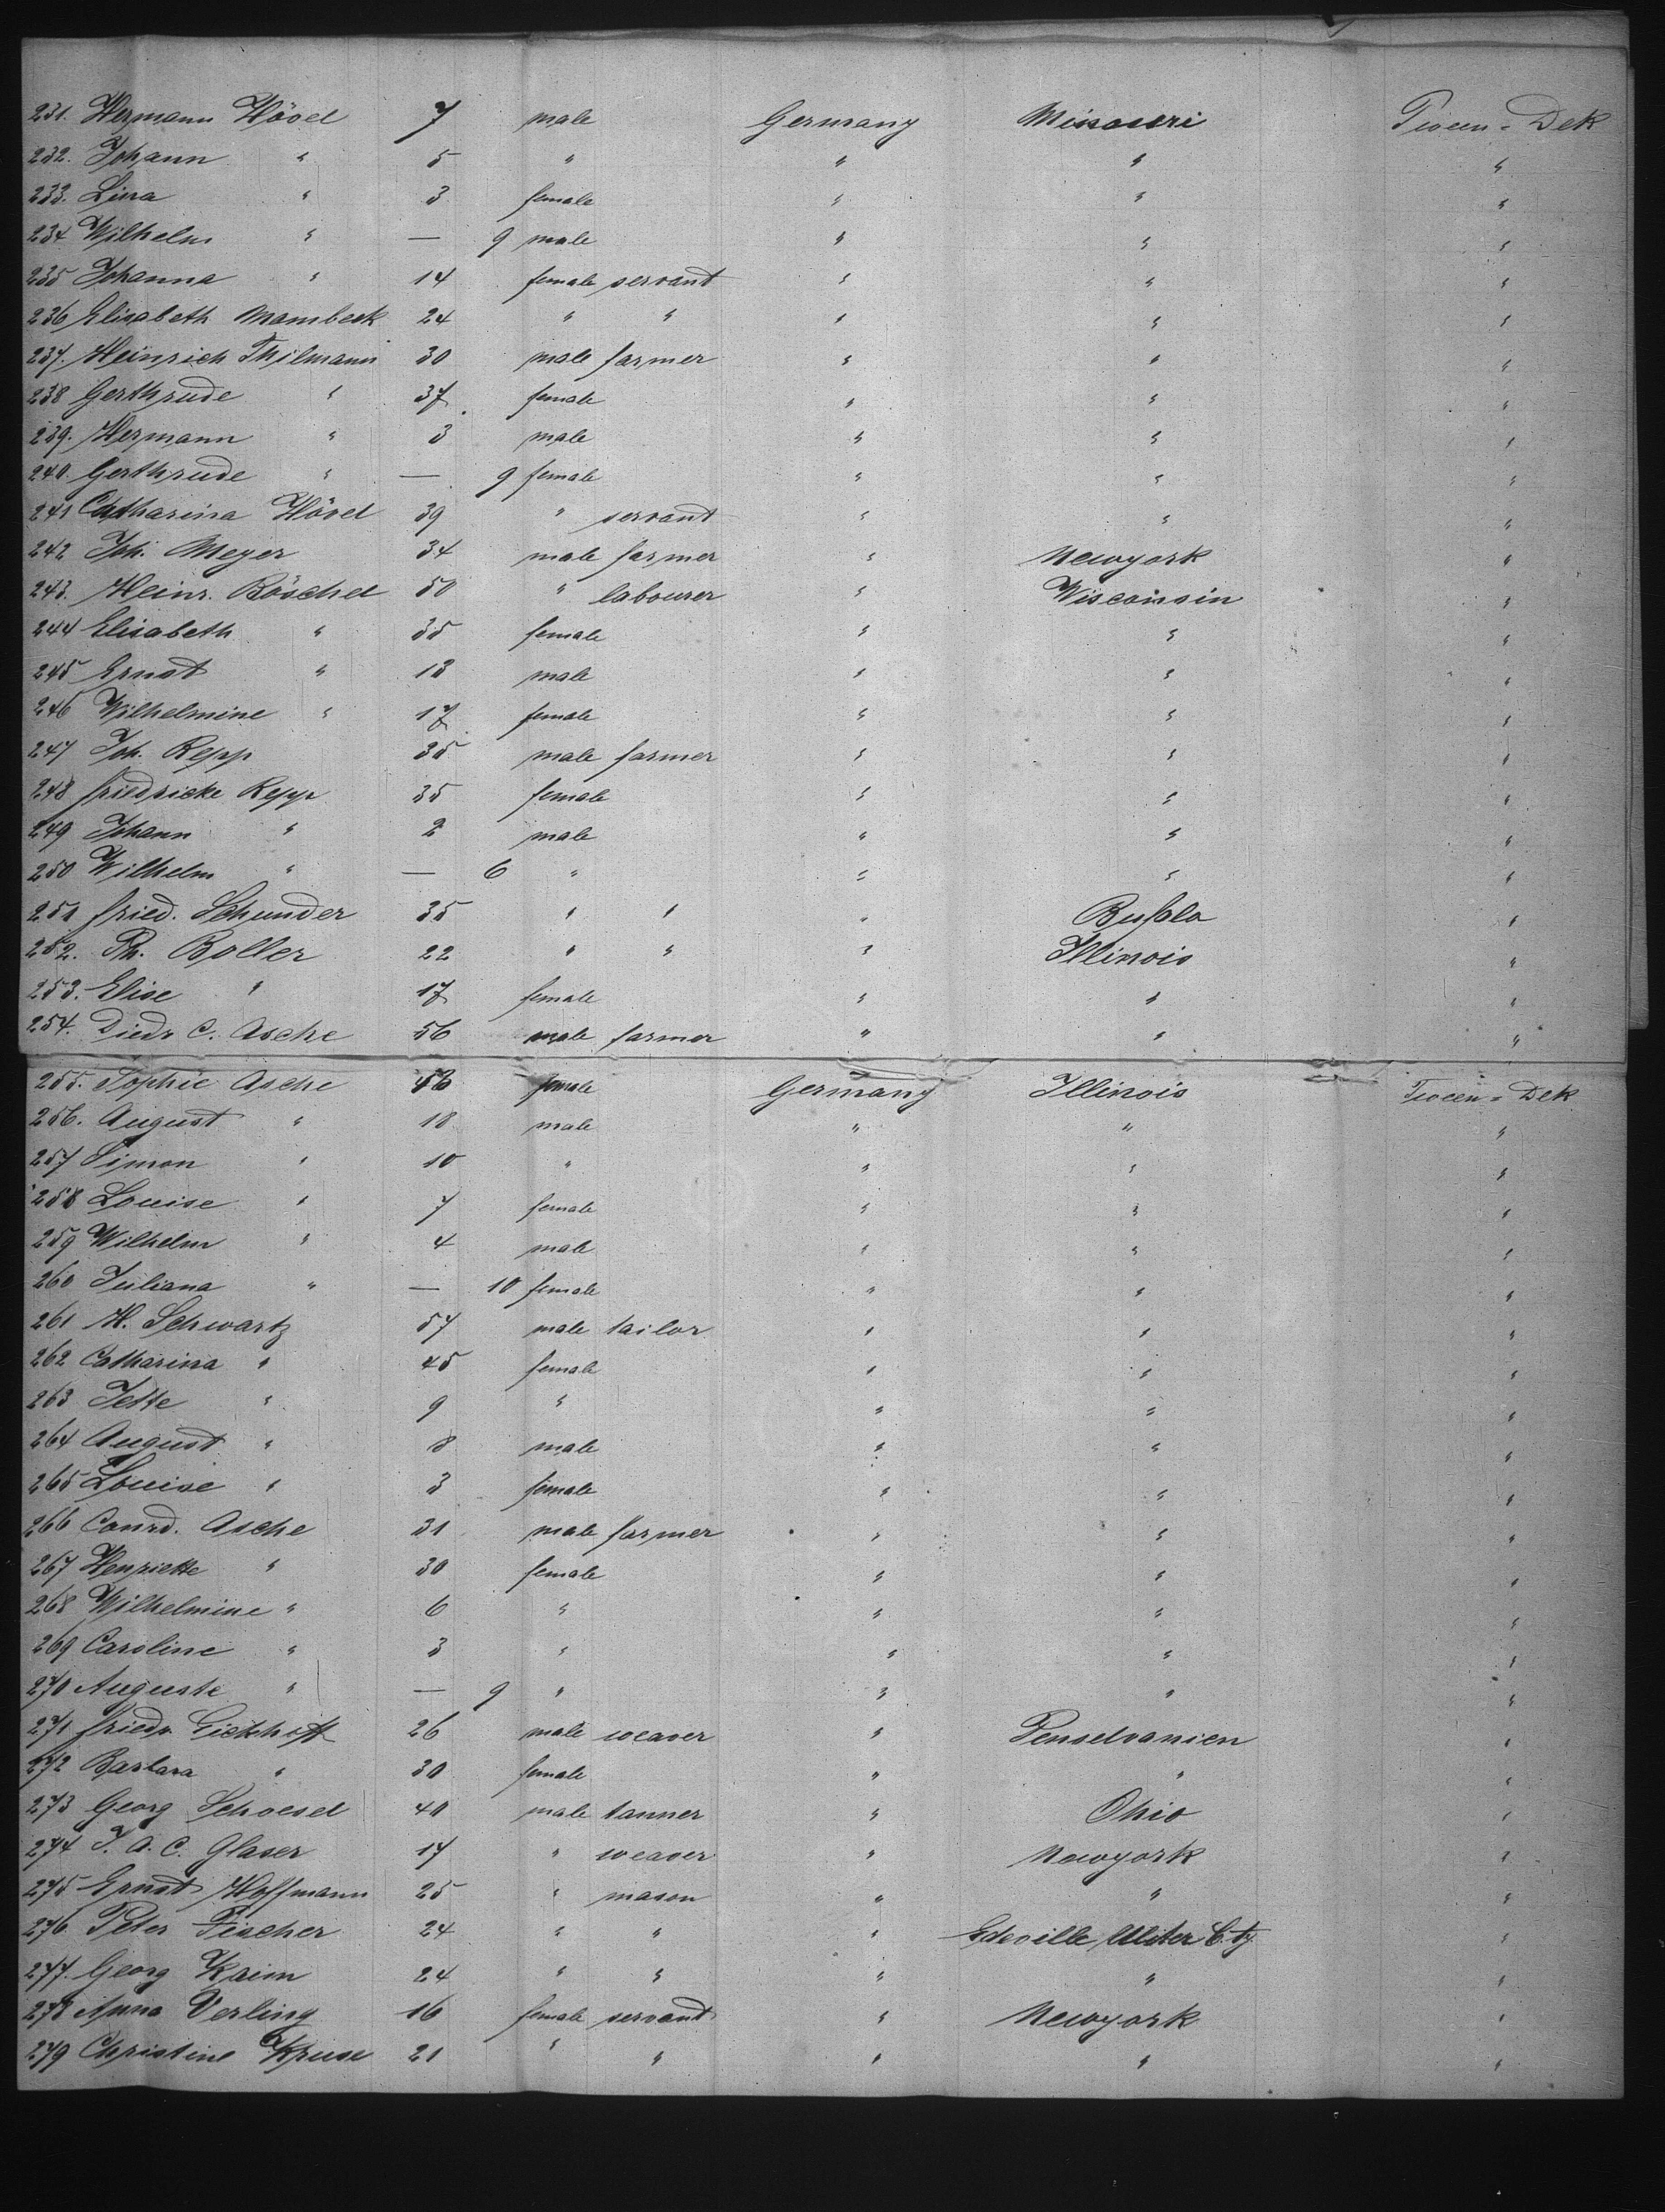 231. Hermann Hövel 7 male Germany Missouri Tween-Dek
232. Johann " 5 " " " "
233. Lina " 3 female " " "
234 Wilhelm " — 9 male " " "
235 Johanna " 14 female servant " " "
236 Elisabeth Mambeck 24 " " " " "
237. Heinrich Thilmann 30 male farmer " " "
238 Gerthrude " 37 female " " "
239. Hermann " 3 male " " "
240. Gerthrude " — 9 female " " "
241 Catharina Hövel 39 " servant " " "
242 Joh. Meyer 34 male farmer " Newyork "
243. Heinr. Böschel 50 " labourer " Wisconsin "
244 Elisabeth " 35 female " " "
245 Ernst " 13 male " " "
246 Wilhelmine " 17 female " " "
247 Joh. Repp 35 male farmer " " "
248 Friedricke Repp 35 female " " "
249 Johann " 2 male " " "
250 Wilhelm " — 6 " " " "
251 Fried. Schunder 35 " " " Bufalo "
252. Ph. Boller 22 " " " Illinois "
253. Elise " 17 female " " "
254. Diedr C. Asche 56 male farmer " " "
255. Sophie Asche female Germany Illinois Tween-Dek
256. August " 18 male " " "
257 Simon " 10 " " " "
258 Louise " 7 female " " "
259 Wilhelm " 4 male " " "
260 Juliana " — 10 female " " "
261 H. Schwartz 57 male tailor " " "
262 Catharina " 45 female " " "
263 Jette " 9 " " " "
264 August " 8 male " " "
265 Louise " 3 female " " "
266 Conrd. Asche 31 male farmer " " "
267 Henriette " 30 female " " "
268 Wilhelmine " 6 " " " "
269 Caroline " 3 " " " "
270 Auguste " — 9 " " " "
271 Friedr Eickhoff 26 male weaver " Penselvanien "
272 Barbara " 30 female " " "
273 Georg Schoesel 40 male tanner " Ohio "
274 J. A. C. Glaser 17 " weaver " Newyork "
275 Ernst Hoffmann 25 " mason " " "
276. Peter Fischer 24 " " " Edeville Ulster C.ty "
277. Georg Kreim 24 " " " " "
278 Anna Verling 16 female servant " Newyork "
279 Christine Kruse 21 " " " " "